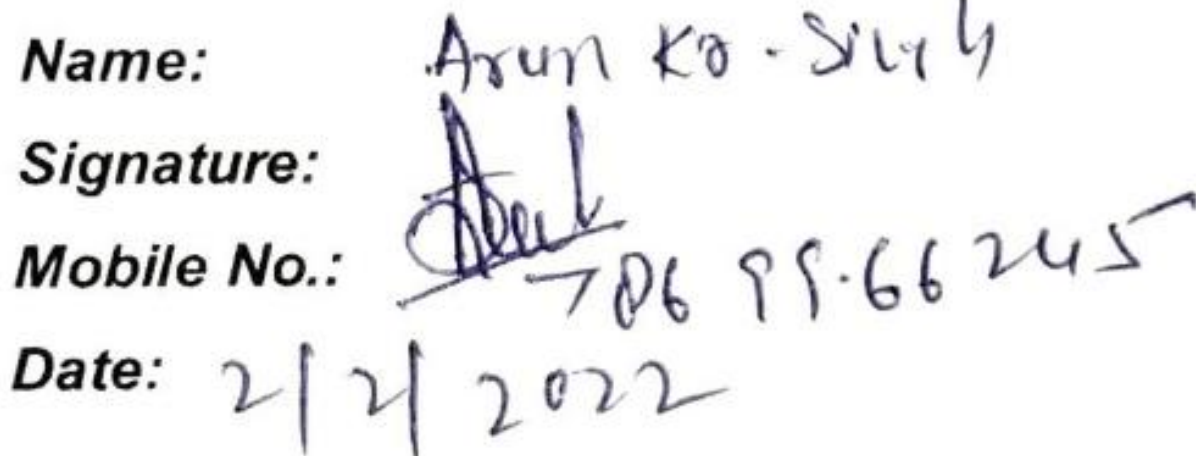 Name: Arun Kr. Singh
Signature:
Mobile No.: 7869966245
Date: 2/2/2022